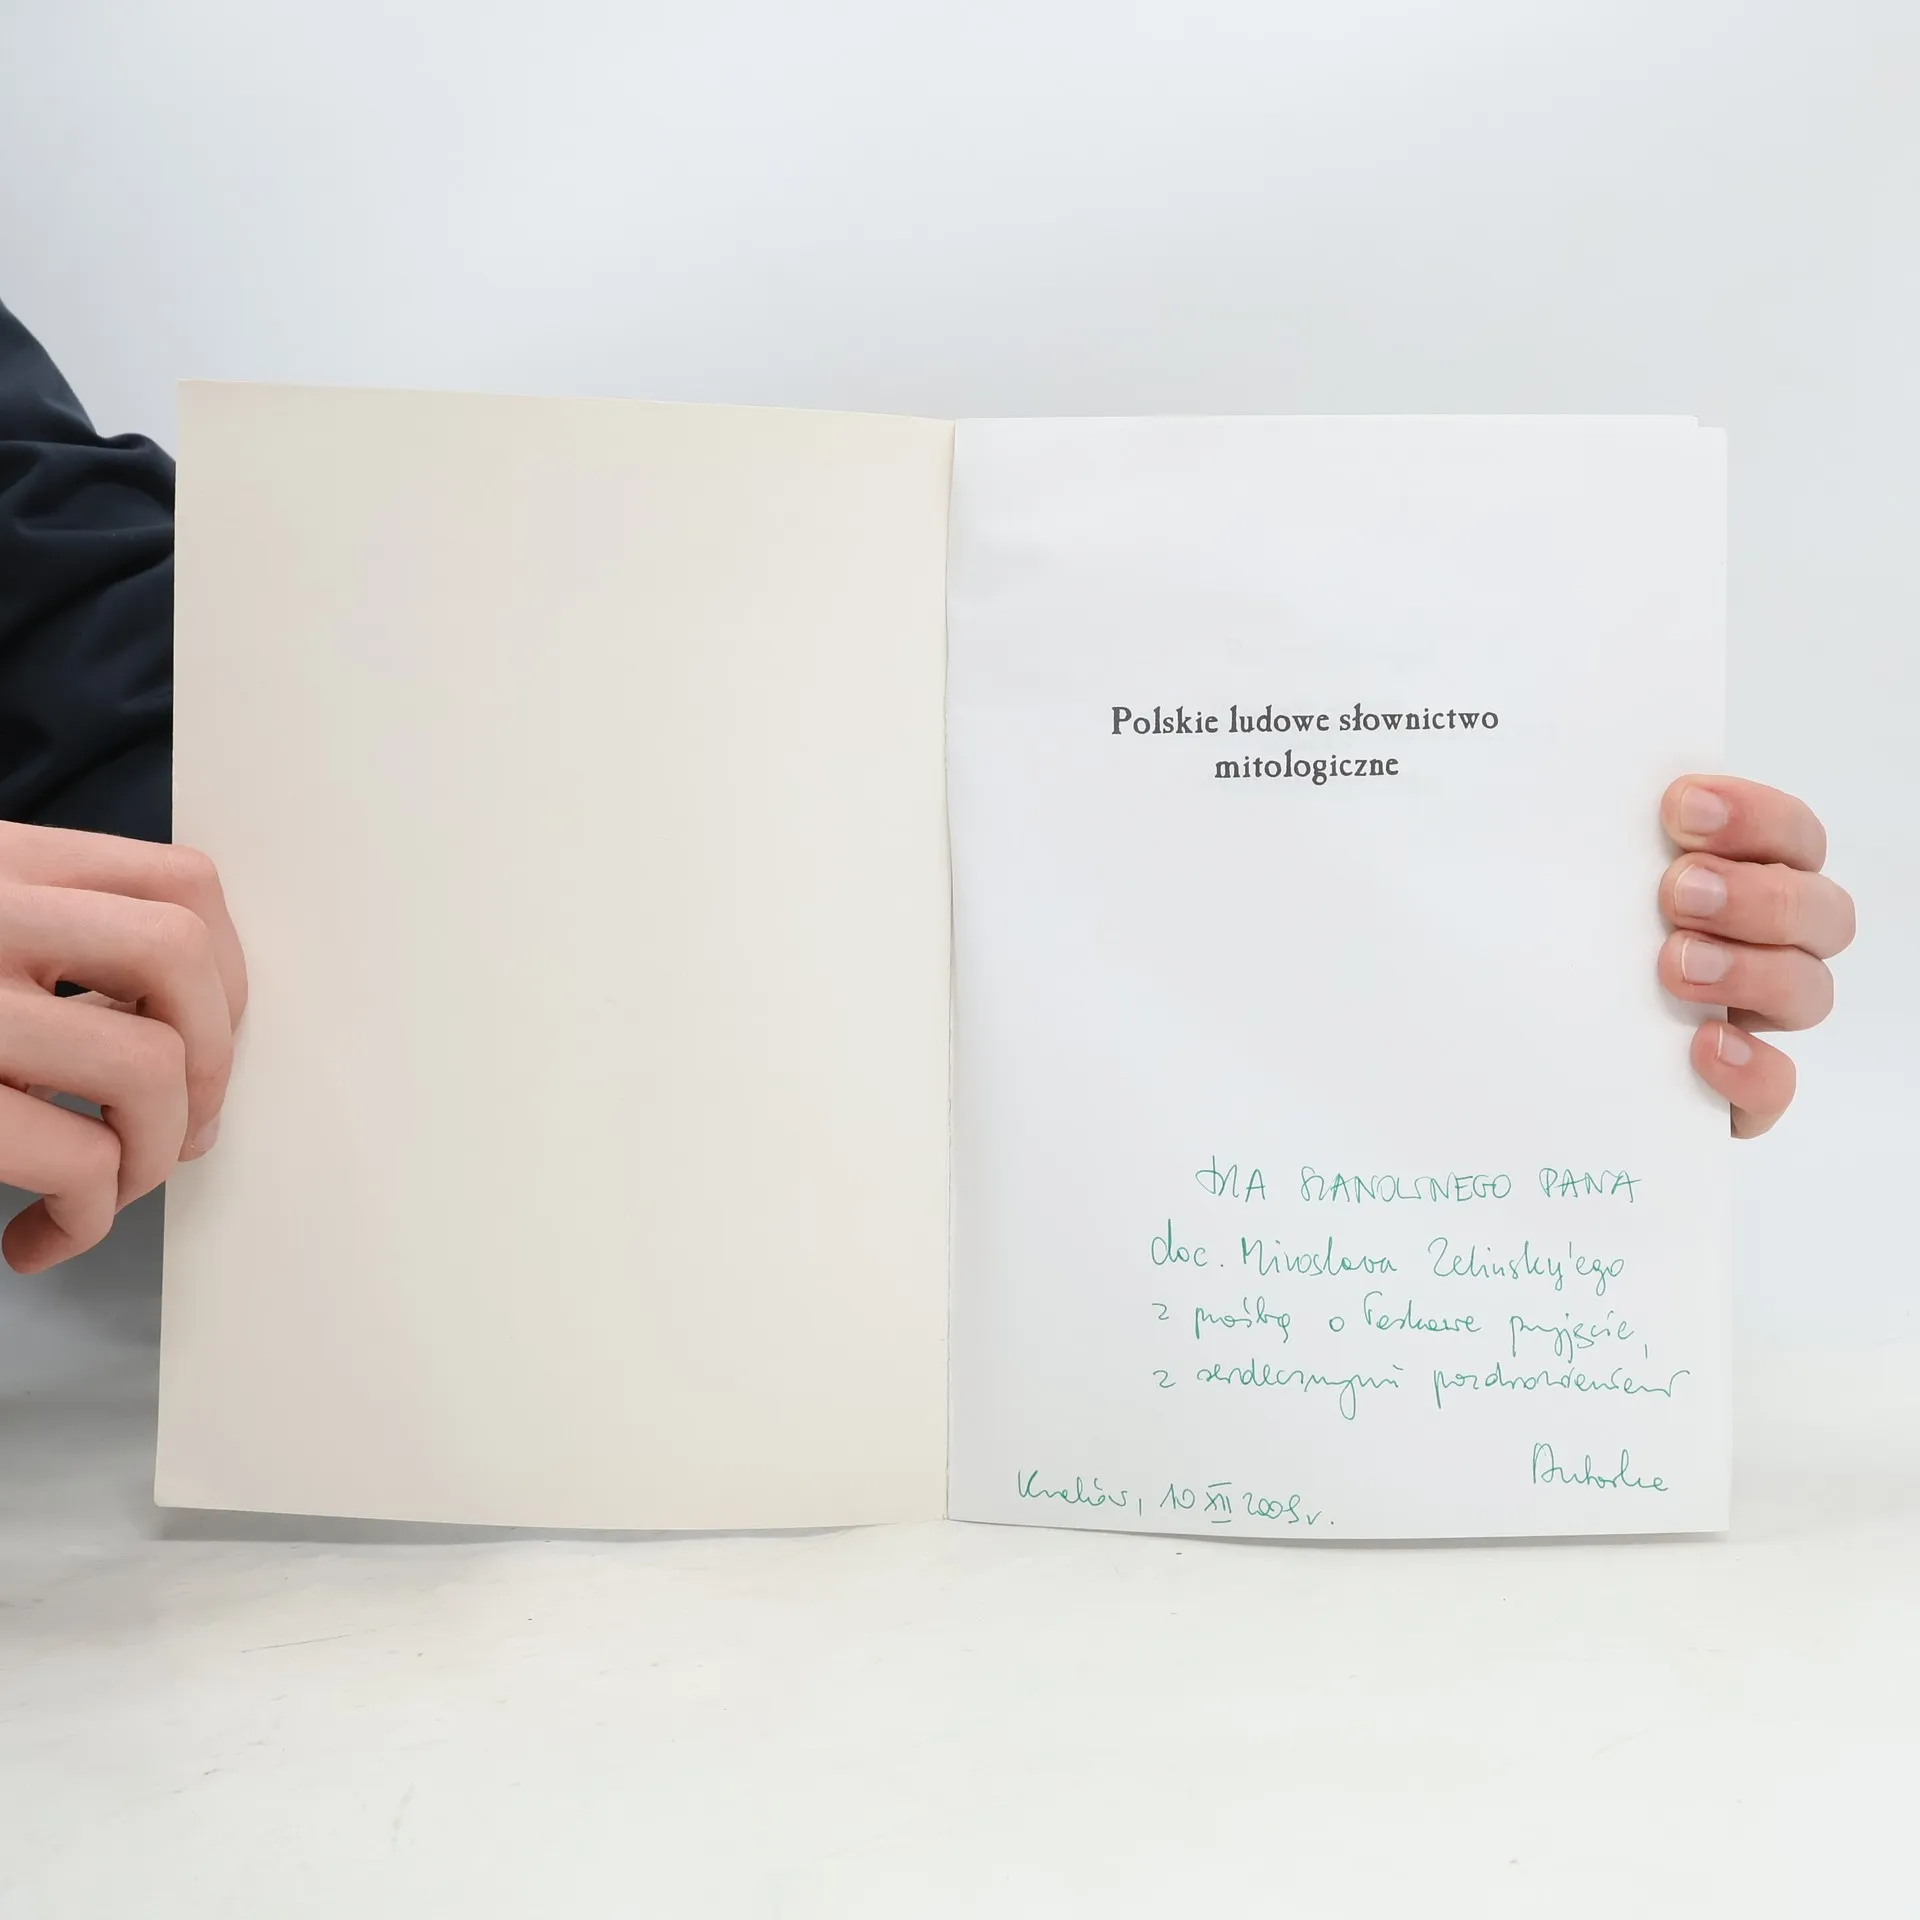 Polskie ludowe słownictwo
mitologiczne
DLA SZANOWNEGO PANA
doc. Miroslava Zelinsky'ego
z prośbą o łaskawe przyjęcie,
z serdecznymi pozdrowieniami
Autorka
Kraków, 10 XII 2009r.